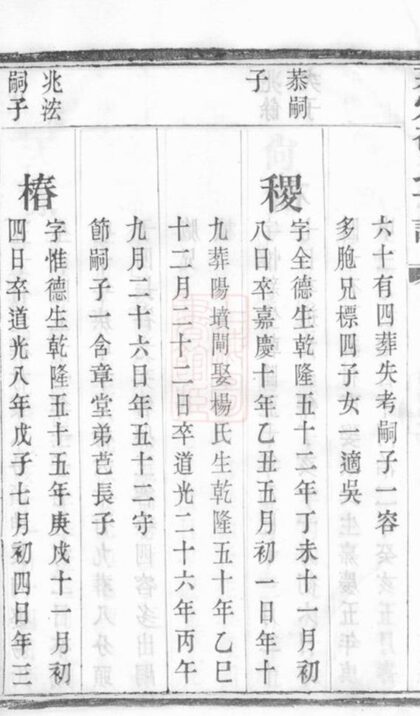 六十有四葬失考嗣子一容
多胞兄標四子女一適吳
恭嗣子
稷
字全德生乾隆五十二年丁未十一月初
八日卒嘉慶十年乙丑五月初一日年十
九葬陽墳閘娶楊氏生乾隆五十年乙巳
十二月二十二日卒道光二十六年丙午
九月二十六日年五十二守
節嗣子一含章堂弟芑長子
兆浤嗣子
椿
字惟德生乾隆五十五年庚戌十一月初
四日卒道光八年戊子七月初四日年三